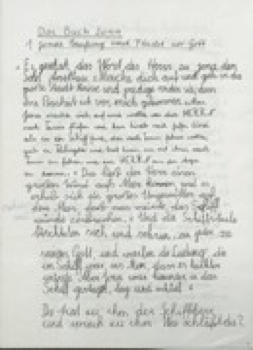 Das Buch Jona
1 Jonas Berufung und Flucht vor Gott
Es geschah das Wort des Herrn zu Jona dem
Sohn Amittais: Mache dich auf und geh in die
große Stadt Ninive und predige wider sie, denn
ihre Bosheit ist vor mich gekommen. Aber
Jona machte sich auf und vor dem HERRN
nach Tarsis und kam hinab nach Jafo.
als er ein Schiff fand, das nach Tarsis fahren wollte,
gab er Fährgeld und trat hinein, um mit ihnen nach
Tarsis zu fahren, dem HERRN aus den Augen
zu kommen. Da ließ der Herr einen
großen Wind aufs Meer kommen und es
erhob sich ein großes Ungewitter auf
dem Meer, daß man meinte, das Schiff
würde zerbrechen. Und die Schiffsleute
fürchteten sich und schrien, ein jeder zu
seinem Gott, und warfen die Ladung, die
im Schiff war, ins Meer, daß es leichter
würde. Aber Jona war hinunter in das
Schiff gestiegen, lag und schlief.
Da trat zu ihm der Schiffsherr
und sprach zu ihm: Was schläfst du?